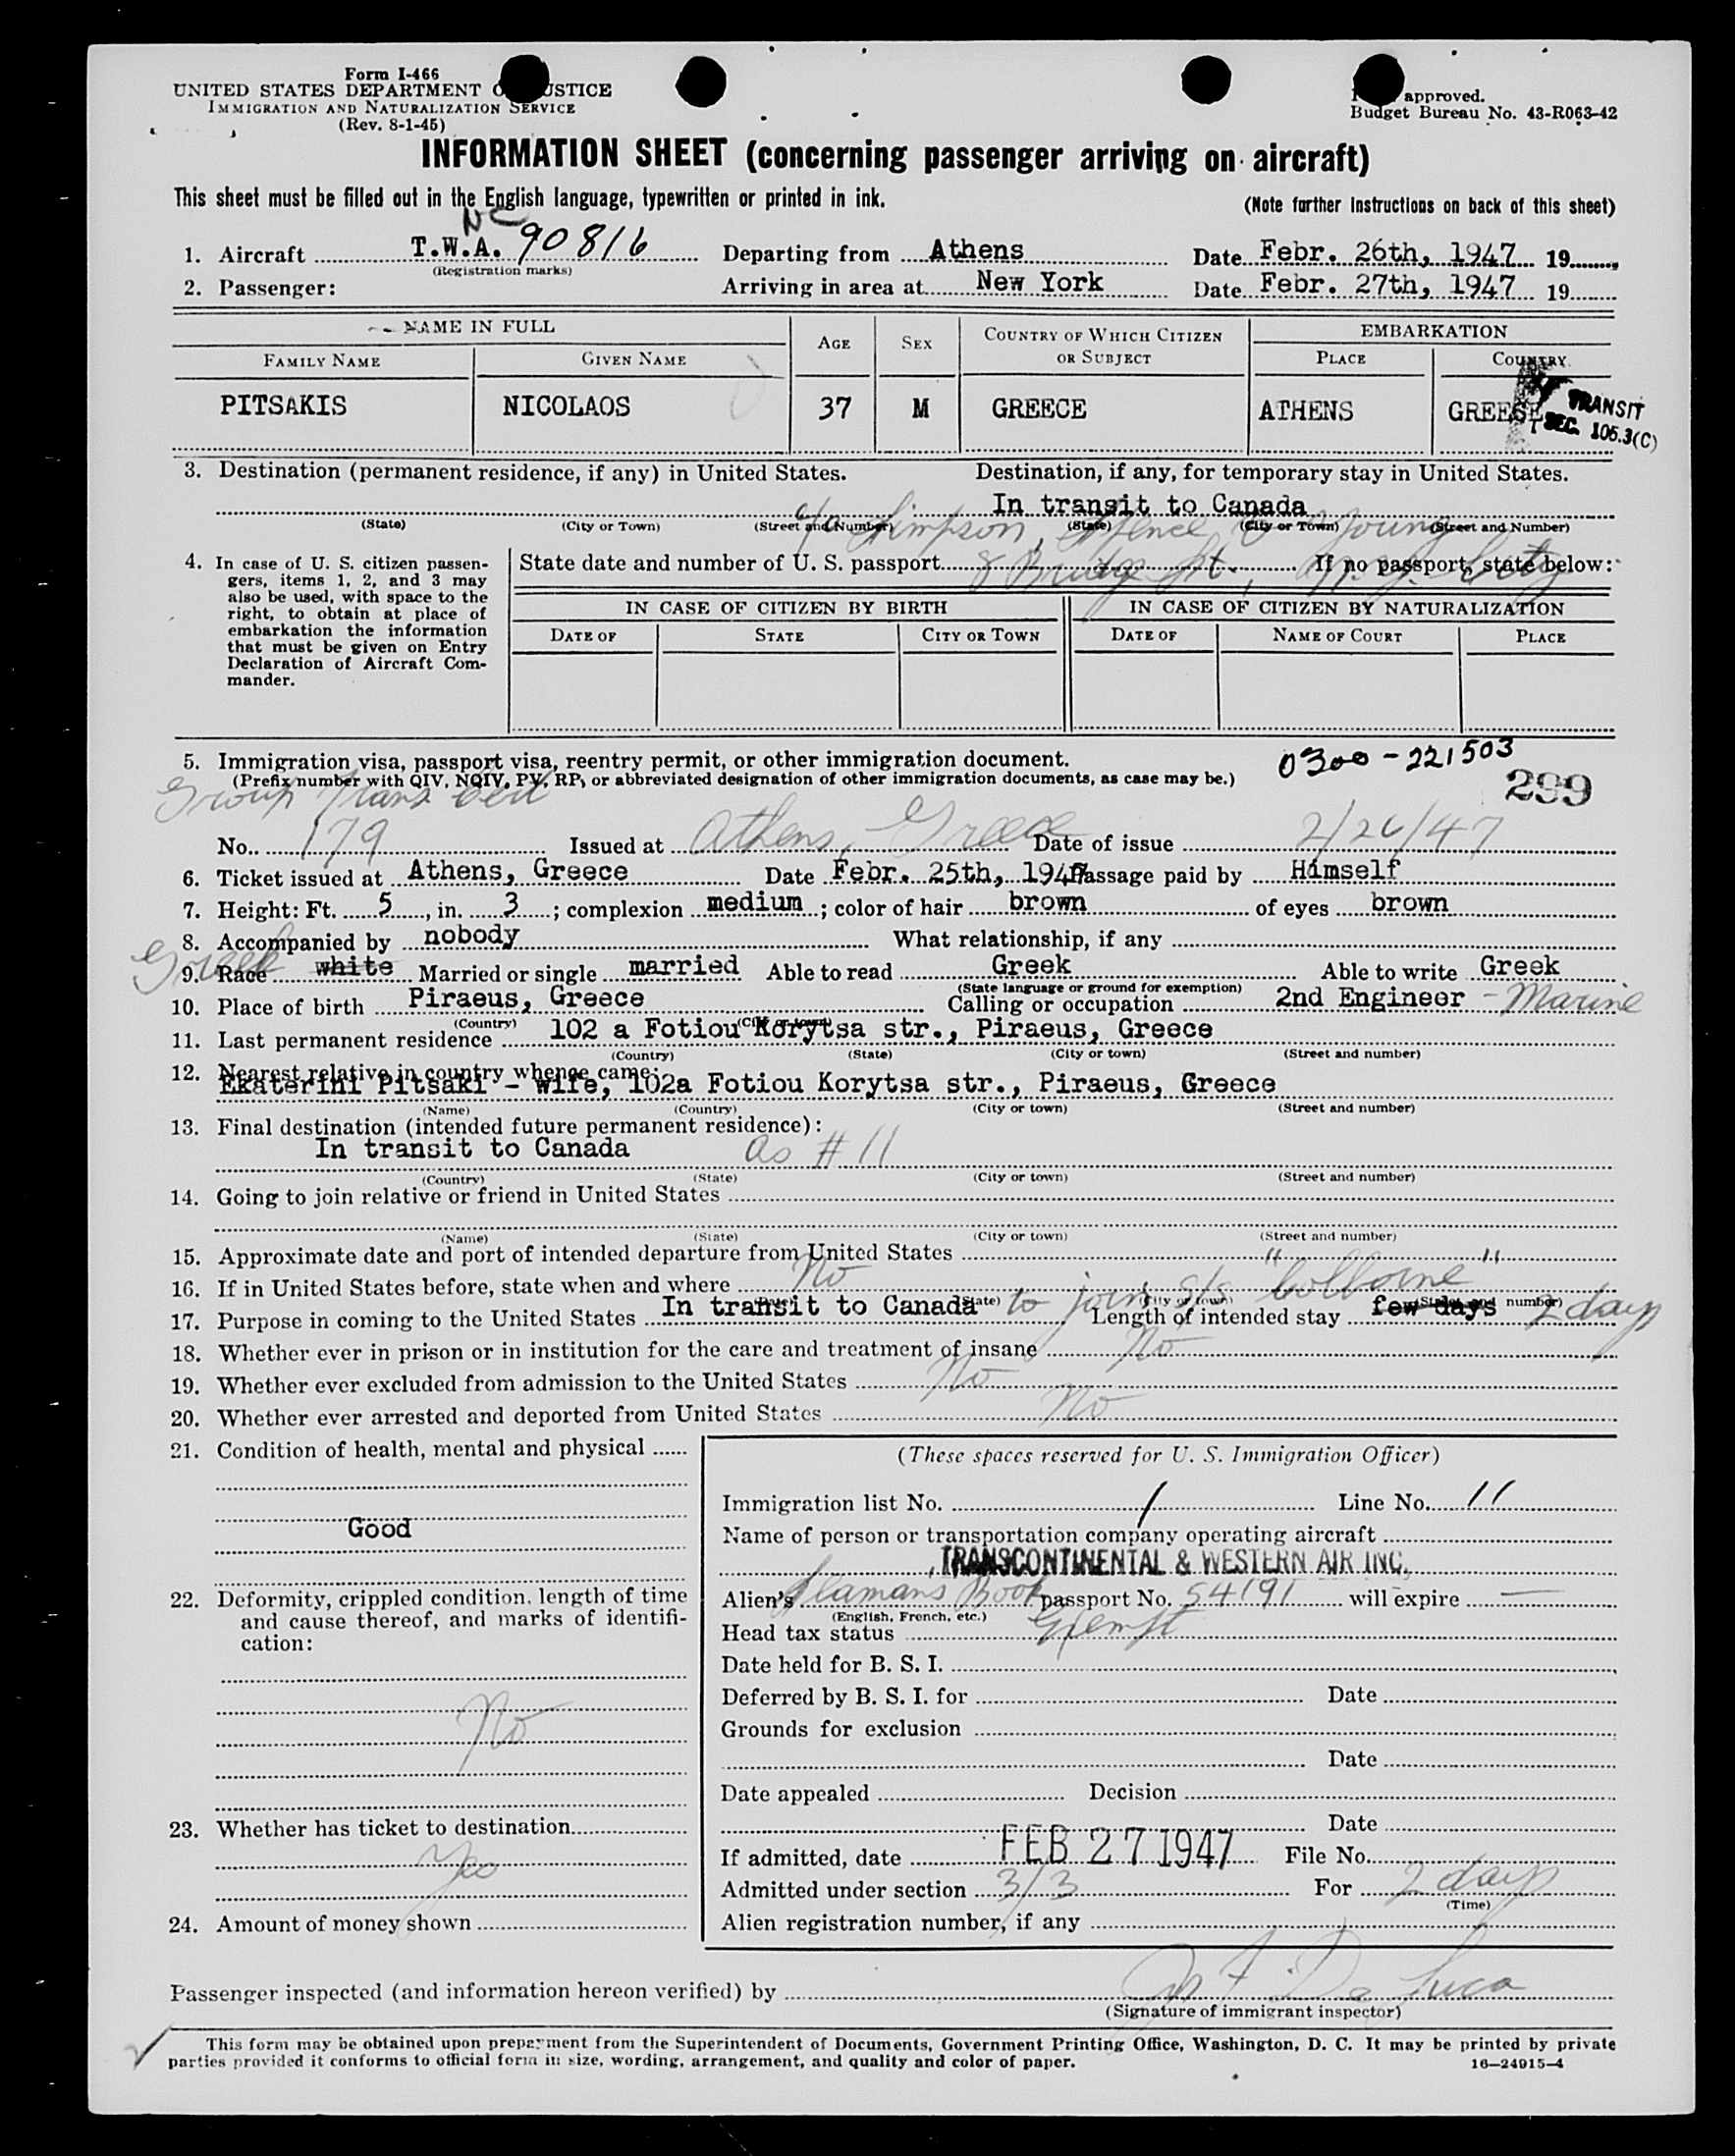 Form I-466
UNITED STATES DEPARTMENT O USTICE
IMMIGRATION AND NATURALIZATION SERVICE
(Rev. 8-1-45)
approved.
Budget Bureau No. 43-R063-42
INFORMATION SHEET (concerning passenger arriving on aircraft)
This sheet must be filled out in the English language, typewritten or printed in ink.
(Note further instructions on back of this sheet)
1. Aircraft T.W.A. NC 90816 Departing from Athens Date Febr. 26th, 1947 19
(Registration marks)
2. Passenger: Arriving in area at New York Date Febr. 27th, 1947 19
NAME IN FULL AGE SEX COUNTRY OF WHICH CITIZEN OR SUBJECT EMBARKATION
FAMILY NAME GIVEN NAME PLACE COUNTRY
PITSAKIS NICOLAOS 37 M GREECE ATHENS GREESE
TRANSIT
SEC. 105.3(C)
3. Destination (permanent residence, if any) in United States. Destination, if any, for temporary stay in United States.
In transit to Canada
(State) (City or Town) (Street and Number) (State) (City or Town) (Street and Number)
c/o Simpson, Spence & Young
8 Bridge St., N.Y. City
4. In case of U. S. citizen passengers, items 1, 2, and 3 may also be used, with space to the right, to obtain at place of embarkation the information that must be given on Entry Declaration of Aircraft Commander.
State date and number of U. S. passport If no passport, state below:
IN CASE OF CITIZEN BY BIRTH IN CASE OF CITIZEN BY NATURALIZATION
DATE OF STATE CITY OR TOWN DATE OF NAME OF COURT PLACE
5. Immigration visa, passport visa, reentry permit, or other immigration document.
(Prefix number with QIV, NQIV, PV, RP, or abbreviated designation of other immigration documents, as case may be.)
0300-221503
299
Group Trans Cert
No. 179 Issued at Athens, Greece Date of issue 2/26/47
6. Ticket issued at Athens, Greece Date Febr. 25th, 1947 Passage paid by Himself
7. Height: Ft. 5, in. 3; complexion medium; color of hair brown of eyes brown
8. Accompanied by nobody What relationship, if any
Greek
9. Race white Married or single married Able to read Greek Able to write Greek
(State language or ground for exemption)
10. Place of birth Piraeus, Greece Calling or occupation 2nd Engineer - Marine
(Country) (City or town)
11. Last permanent residence 102 a Fotiou Korytsa str., Piraeus, Greece
(Country) (State) (City or town) (Street and number)
12. Nearest relative in country whence came:
Ekaterini Pitsaki - wife, 102a Fotiou Korytsa str., Piraeus, Greece
(Name) (Country) (City or town) (Street and number)
13. Final destination (intended future permanent residence):
In transit to Canada as # 11
(Country) (State) (City or town) (Street and number)
14. Going to join relative or friend in United States
(Name) (State) (City or town) (Street and number)
15. Approximate date and port of intended departure from United States
16. If in United States before, state when and where No
(Date) (State) (City or town) (Street and number)
17. Purpose in coming to the United States In transit to Canada to join s/s "Colborne" Length of intended stay few days 2 days
18. Whether ever in prison or in institution for the care and treatment of insane No
19. Whether ever excluded from admission to the United States No
20. Whether ever arrested and deported from United States No
21. Condition of health, mental and physical
Good
22. Deformity, crippled condition, length of time and cause thereof, and marks of identification:
No
23. Whether has ticket to destination
Yes
24. Amount of money shown
(These spaces reserved for U. S. Immigration Officer)
Immigration list No. 1 Line No. 11
Name of person or transportation company operating aircraft
TRANSCONTINENTAL & WESTERN AIR INC.
Alien's Seamans Book passport No. 54191 will expire —
(English, French, etc.)
Head tax status Exempt
Date held for B. S. I.
Deferred by B. S. I. for Date
Grounds for exclusion
Date
Date appealed Decision
Date
If admitted, date FEB 27 1947 File No.
Admitted under section 3/3 For 2 days
(Time)
Alien registration number, if any
Passenger inspected (and information hereon verified) by De Luca
(Signature of immigrant inspector)
This form may be obtained upon prepayment from the Superintendent of Documents, Government Printing Office, Washington, D. C. It may be printed by private
parties provided it conforms to official form in size, wording, arrangement, and quality and color of paper.
16—24915-4